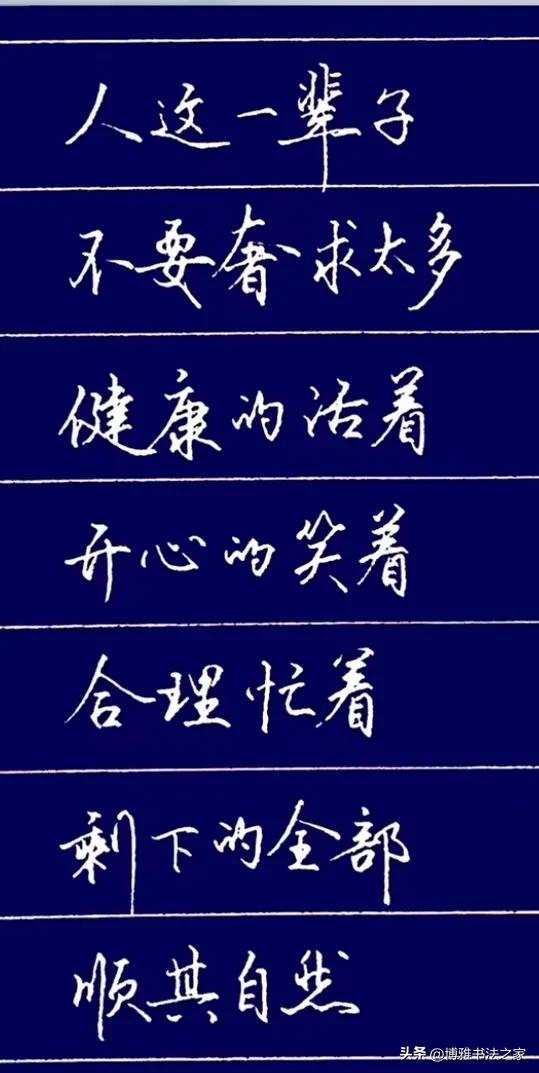 人这一辈子
不要奢求太多
健康的活着
开心的笑着
合理忙着
剩下的全部
顺其自然
头条 @博雅书法之家